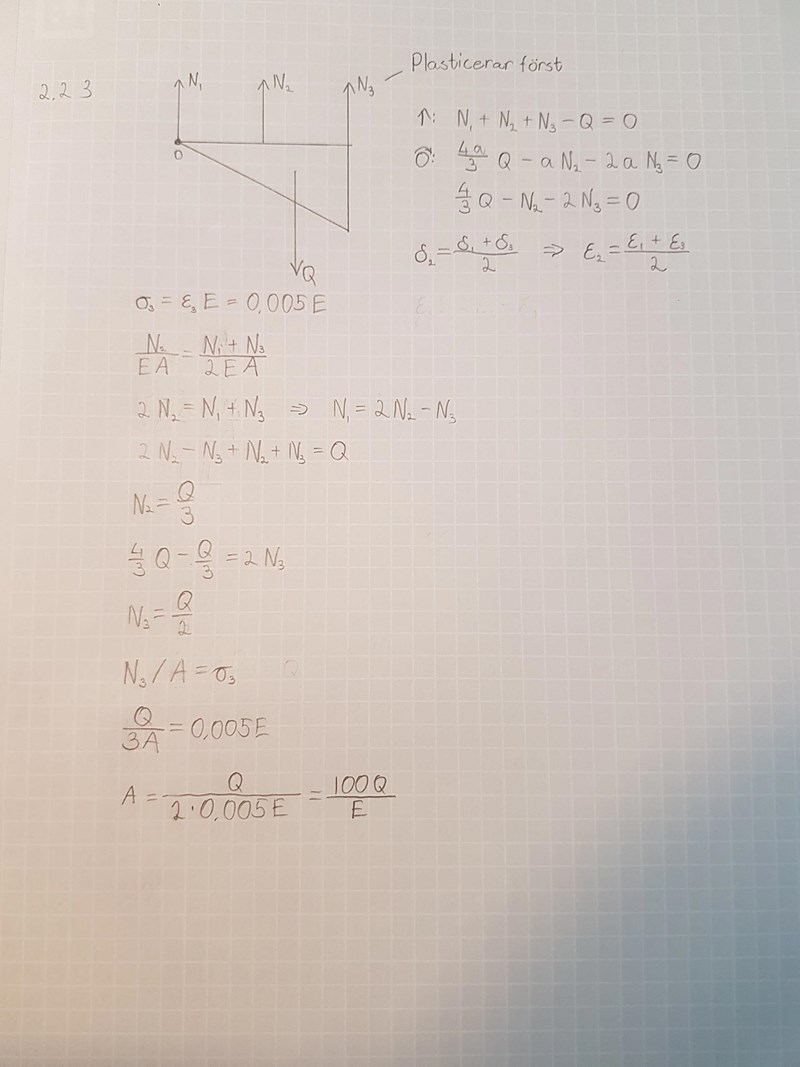 2.2 3
N₁ N₂ N₃ Plasticerar först
O
Q
↑: N₁ + N₂ + N₃ − Q = 0
O: 4a/3 Q − a N₂ − 2a N₃ = 0
4/3 Q − N₂ − 2 N₃ = 0
δ₂ = (δ₁ + δ₃)/2 ⇒ ε₂ = (ε₁ + ε₃)/2
σ₃ = ε₃ E = 0,005 E
N₂/EA = (N₁ + N₃)/2EA
2 N₂ = N₁ + N₃ ⇒ N₁ = 2 N₂ − N₃
2 N₂ − N₃ + N₂ + N₃ = Q
N₂ = Q/3
4/3 Q − Q/3 = 2 N₃
N₃ = Q/2
N₃ / A = σ₃
Q/3A = 0,005E
A = Q/(2 · 0,005E) = 100Q/E